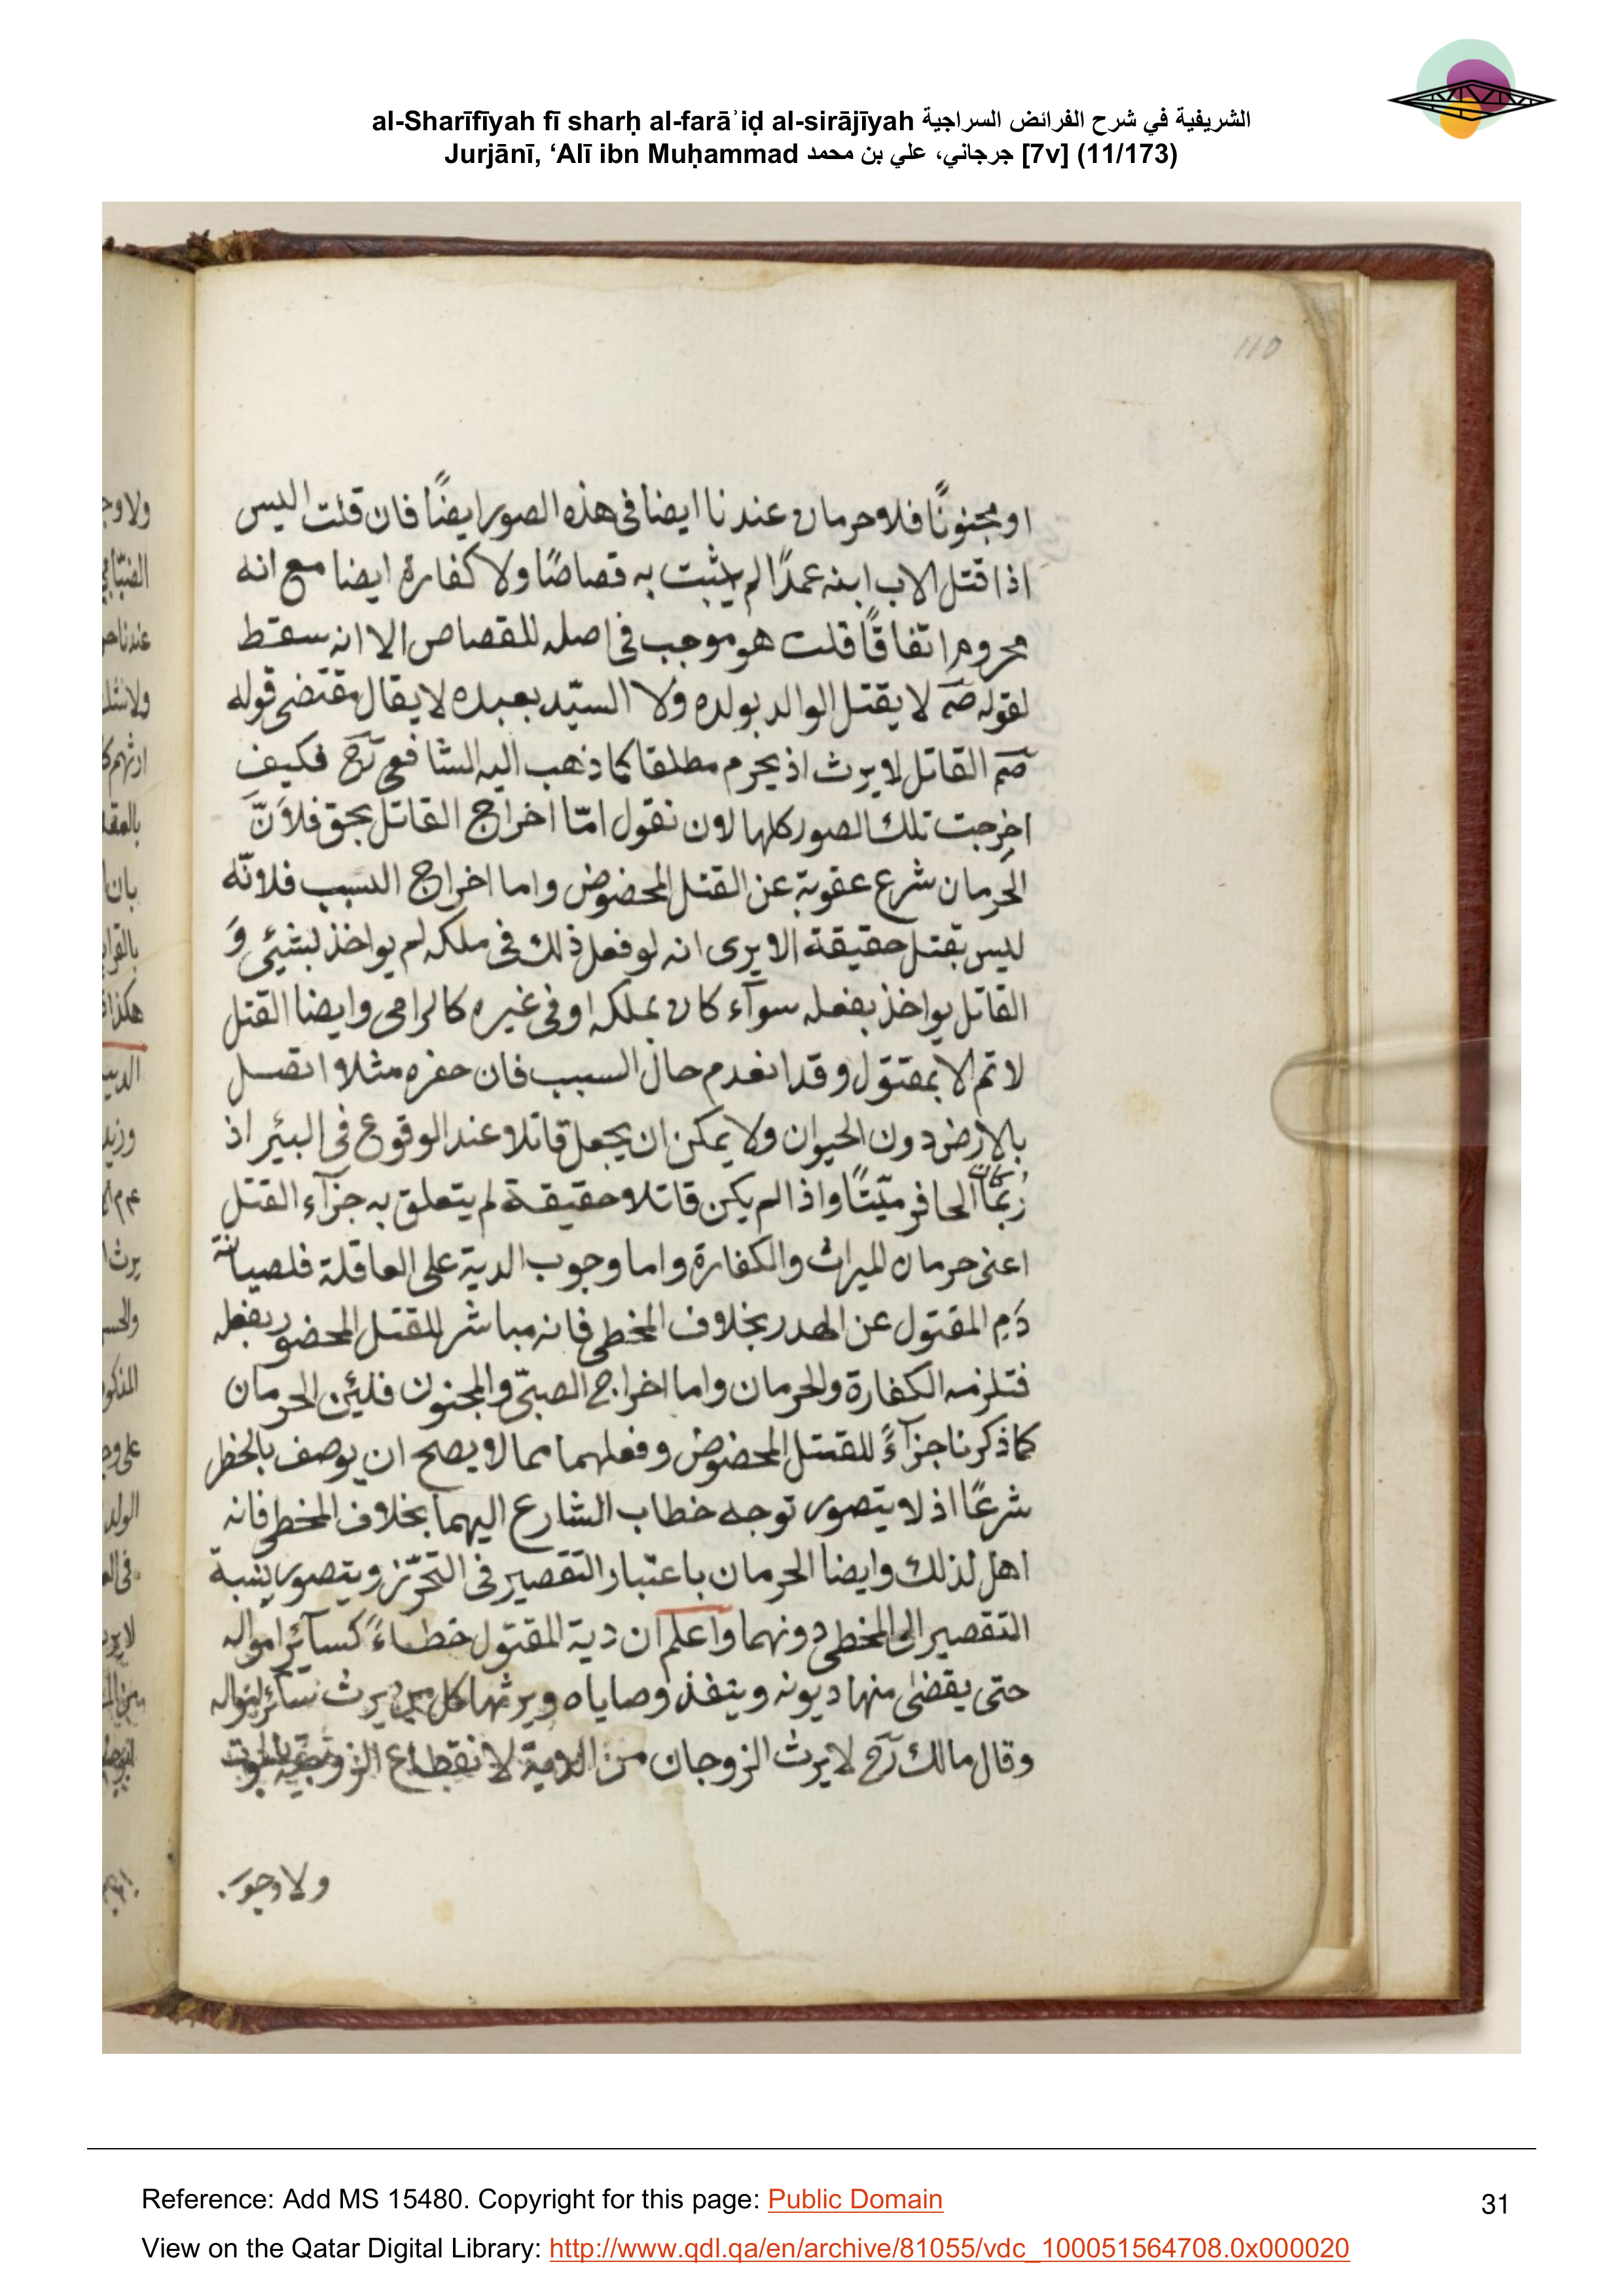 al-Sharīfīyah fī sharḥ al-farāʾiḍ al-sirājīyah الشريفية في شرح الفرائض السراجية
Jurjānī, ‘Alī ibn Muḥammad جرجاني، علي بن محمد [7v] (11/173)
110
او مجنونًا فلا حرمان عندنا ايضا فى هذه الصور ايضًا فان قلت اليس
اذا قتل الاب ابنه عمدًا لم يثبت به قصاصًا ولا كفارة ايضا مع انه
محروم اتفاقًا قلت هو موجب فى اصله للقصاص الا انه سقط
لقوله صم لا يقتل الوالد بولده ولا السيّد بعبده لا يقال مقتضى قوله
صم القاتل لا يرث اذ يحرم مطلقا كما ذهب اليه الشافعى رح فكيف
اخرجت تلك الصور كلها لان نقول امّا اخراج القاتل بحق فلاَنّ
الحرمان شرع عقوبة عن القتل المحضوض واما اخراج السبب فلانّه
ليس بقتل حقيقة الا يرى انه لو فعل ذلك فى ملكه لم يواخذ لبشيئ وَ
القاتل يواخذ بفعله سوآء كان بملكه او فى غيره كالرامى وايضا القتل
لا تم الا بمقتول وقد انعدم حال السبب فان حفره مثلا اتصل
بالارض دون الحيوان ولا يمكن ان يجعل قاتلا عند الوقوع فى البئر اذ
رُبّما كان الحافر ميّتًا واذا لم يكن قاتلا حقيقة لم يتعلق به جزآء القتل
اعنى حرمان الميراث والكفارة واما وجوب الدية على العاقلة فلصيانة
دَمِ المقتول عن الهدر بخلاف المخطى فانه مباشر للقتل المحضور بفعله
فتلزمه الكفارة والحرمان واما اخراج الصبىّ والمجنون فلئن الحرمان
كما ذكرنا جزآءً للقتل المحضوض وفعلهما مما لا يصح ان يوصف بالخطر
شرعًا اذ لا يتصور توجه خطاب الشارع اليهما بخلاف المخطى فانه
اهل لذلك وايضا الحرمان باعتبار التقصير فى التحرّز ويتصور ينسبة
التقصير الى المخطى دونهما واعلم ان دية المقتول خطاءً كسآئر امواله
حتى يقضى منها ديونه وينفذ وصاياه ويرثها كل من يرث سآئر امواله
وقال مالك رح لا يرث الزوجان من الدية لانقطاع الزوجية بالموت
ولا وجوب
Reference: Add MS 15480. Copyright for this page: Public Domain
31
View on the Qatar Digital Library: http://www.qdl.qa/en/archive/81055/vdc_100051564708.0x000020